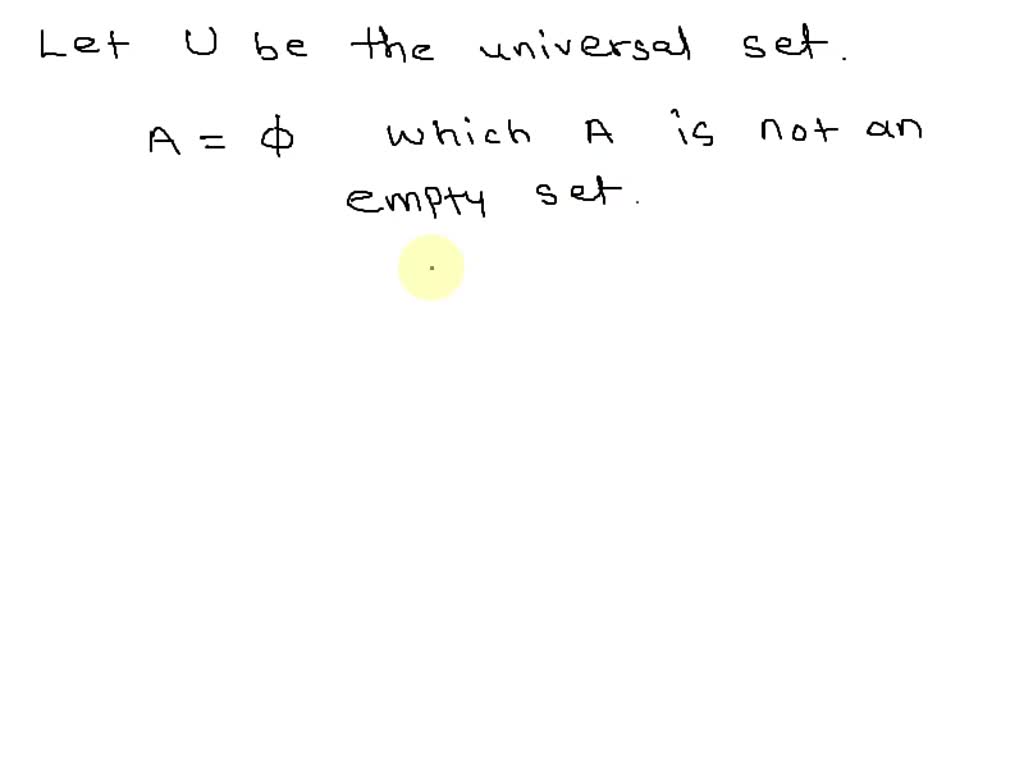 Let U be the universal set.
A = ϕ which A is not an
empty set.